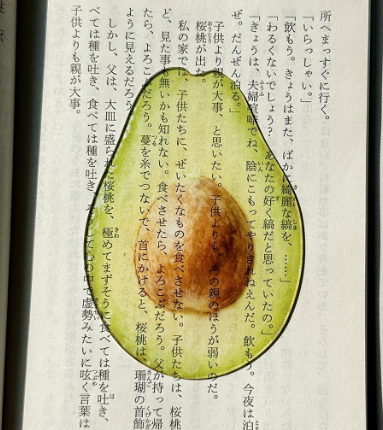 所へまっすぐに行く。
「いらっしゃい。」
「飲もう。きょうはまた、ばかに綺麗な縞を、……」
「わるくないでしょう? あなたの好く縞だと思っていたの。」
「きょうは、夫婦喧嘩でね、陰にこもってやりきれねえんだ。飲もう。今夜は泊
ぜ。だんぜん泊る。」
子供より親が大事、と思いたい。子供よりも、その親のほうが弱いのだ。
桜桃が出た。
私の家では、子供たちに、ぜいたくなものを食べさせない。子供たちは、桜桃
ど、見た事も無いかも知れない。食べさせたら、よろこぶだろう。父が持って帰
たら、よろこぶだろう。蔓を糸でつないで、首にかけると、桜桃は、珊瑚の首飾
ように見えるだろう。
しかし、父は、大皿に盛られた桜桃を、極めてまずそうに食べては種を吐き、
べては種を吐き、食べては種を吐き、そうして心の中で虚勢みたいに呟く言葉は
子供よりも親が大事。